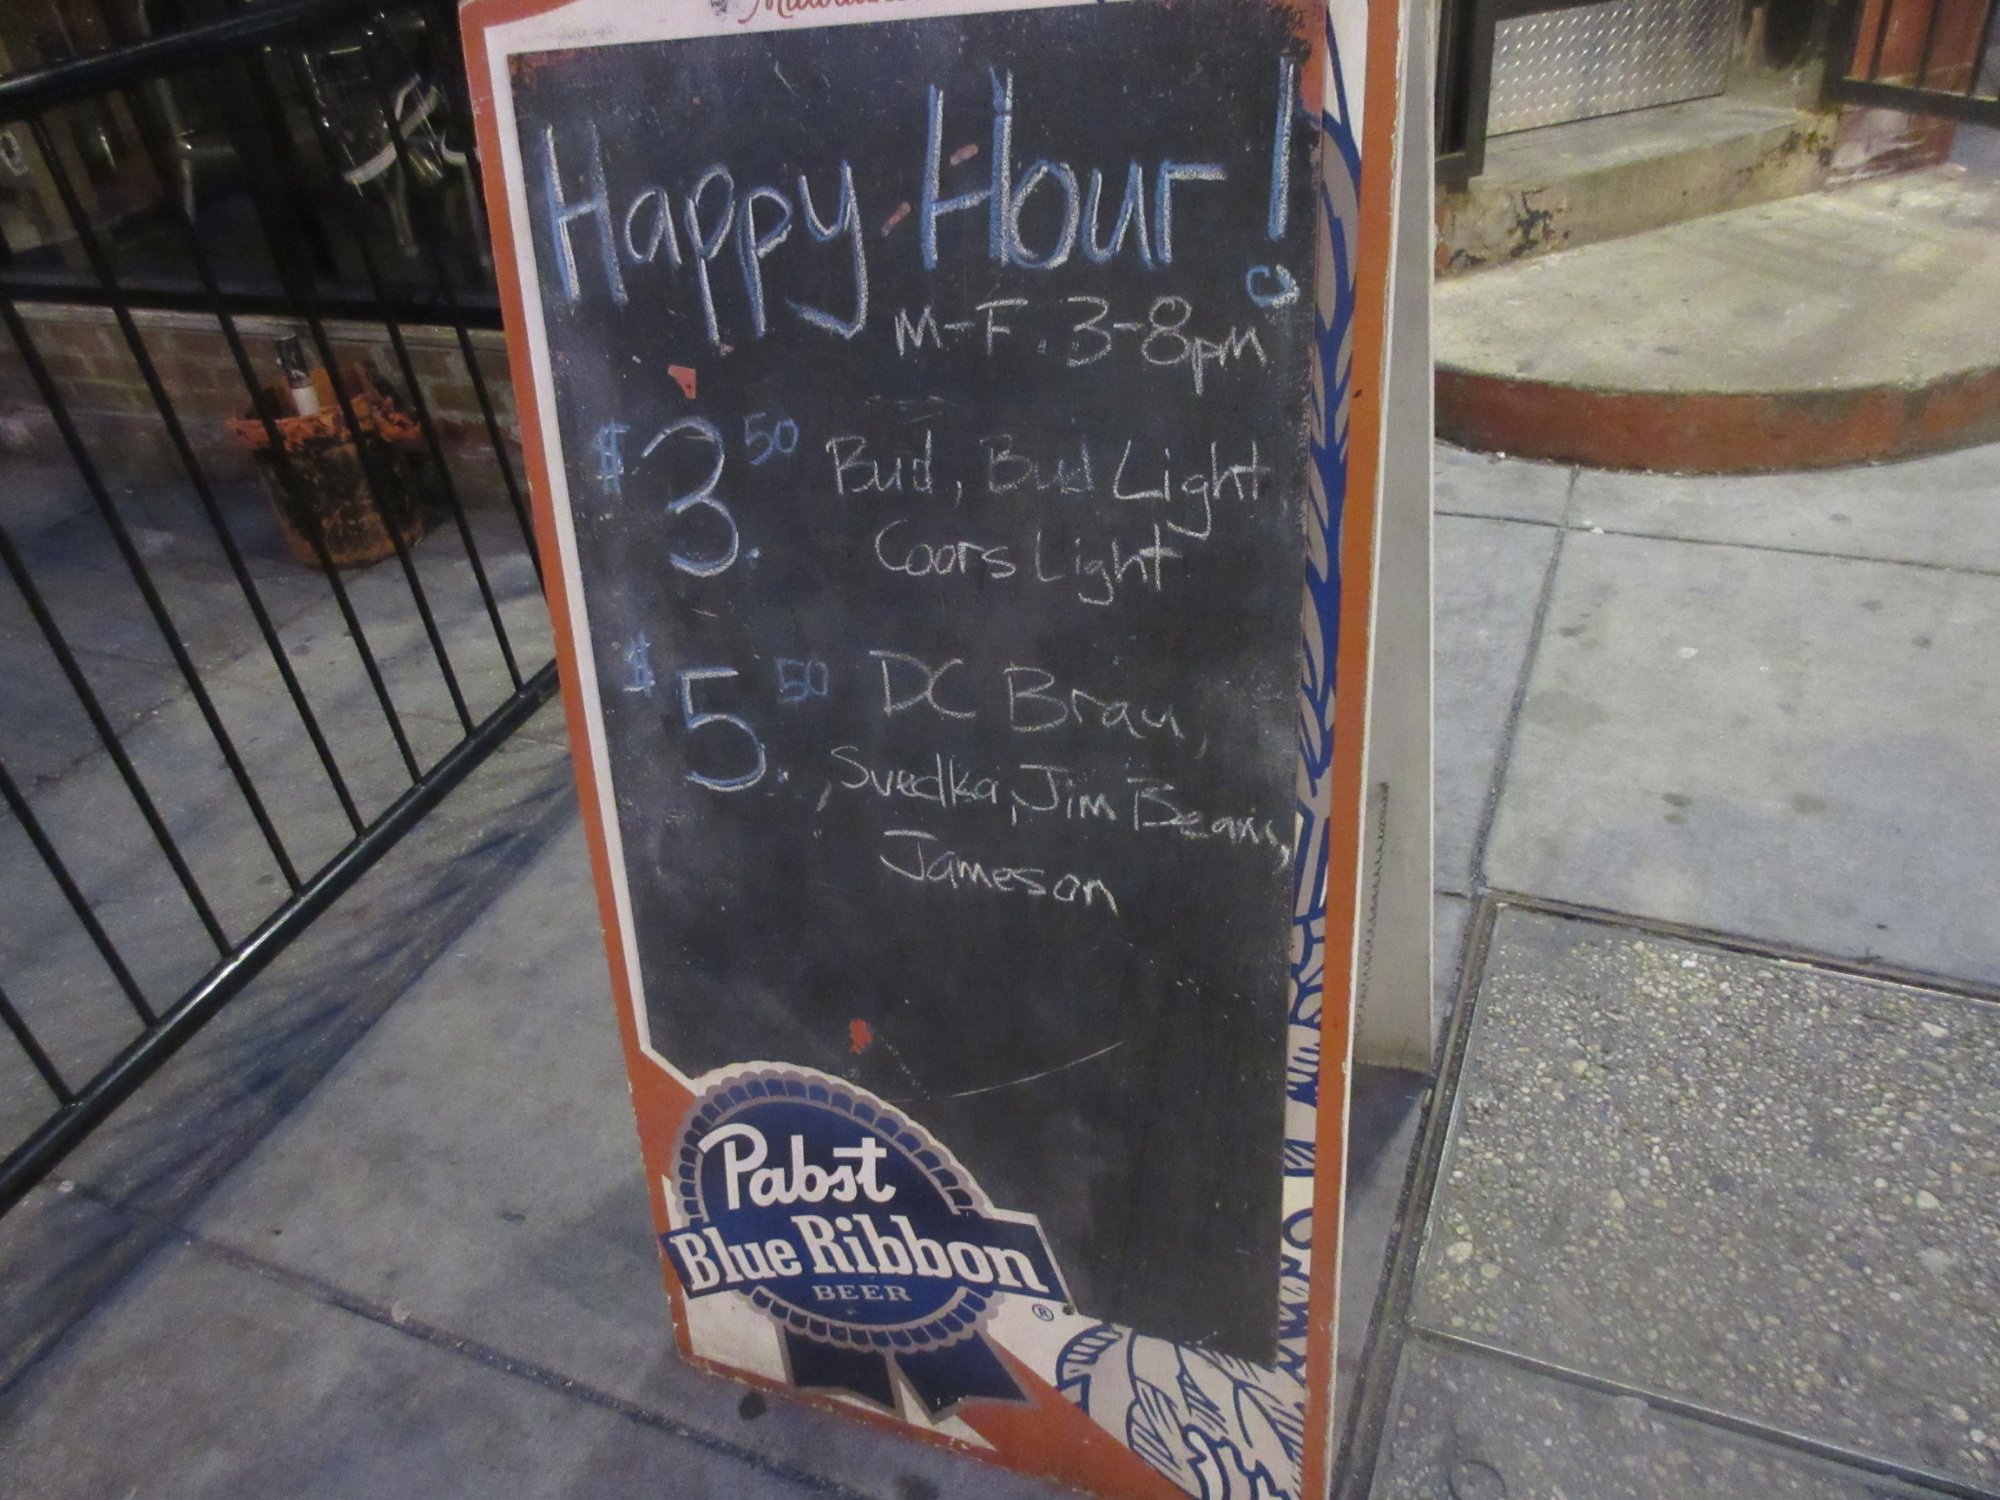 Happy Hour!
M-F. 3-8pm
$3.50 Bud, Bud Light
Coors Light
$5.50 DC Brau,
Svedka, Jim Beam,
Jameson
Pabst
Blue Ribbon
BEER
®